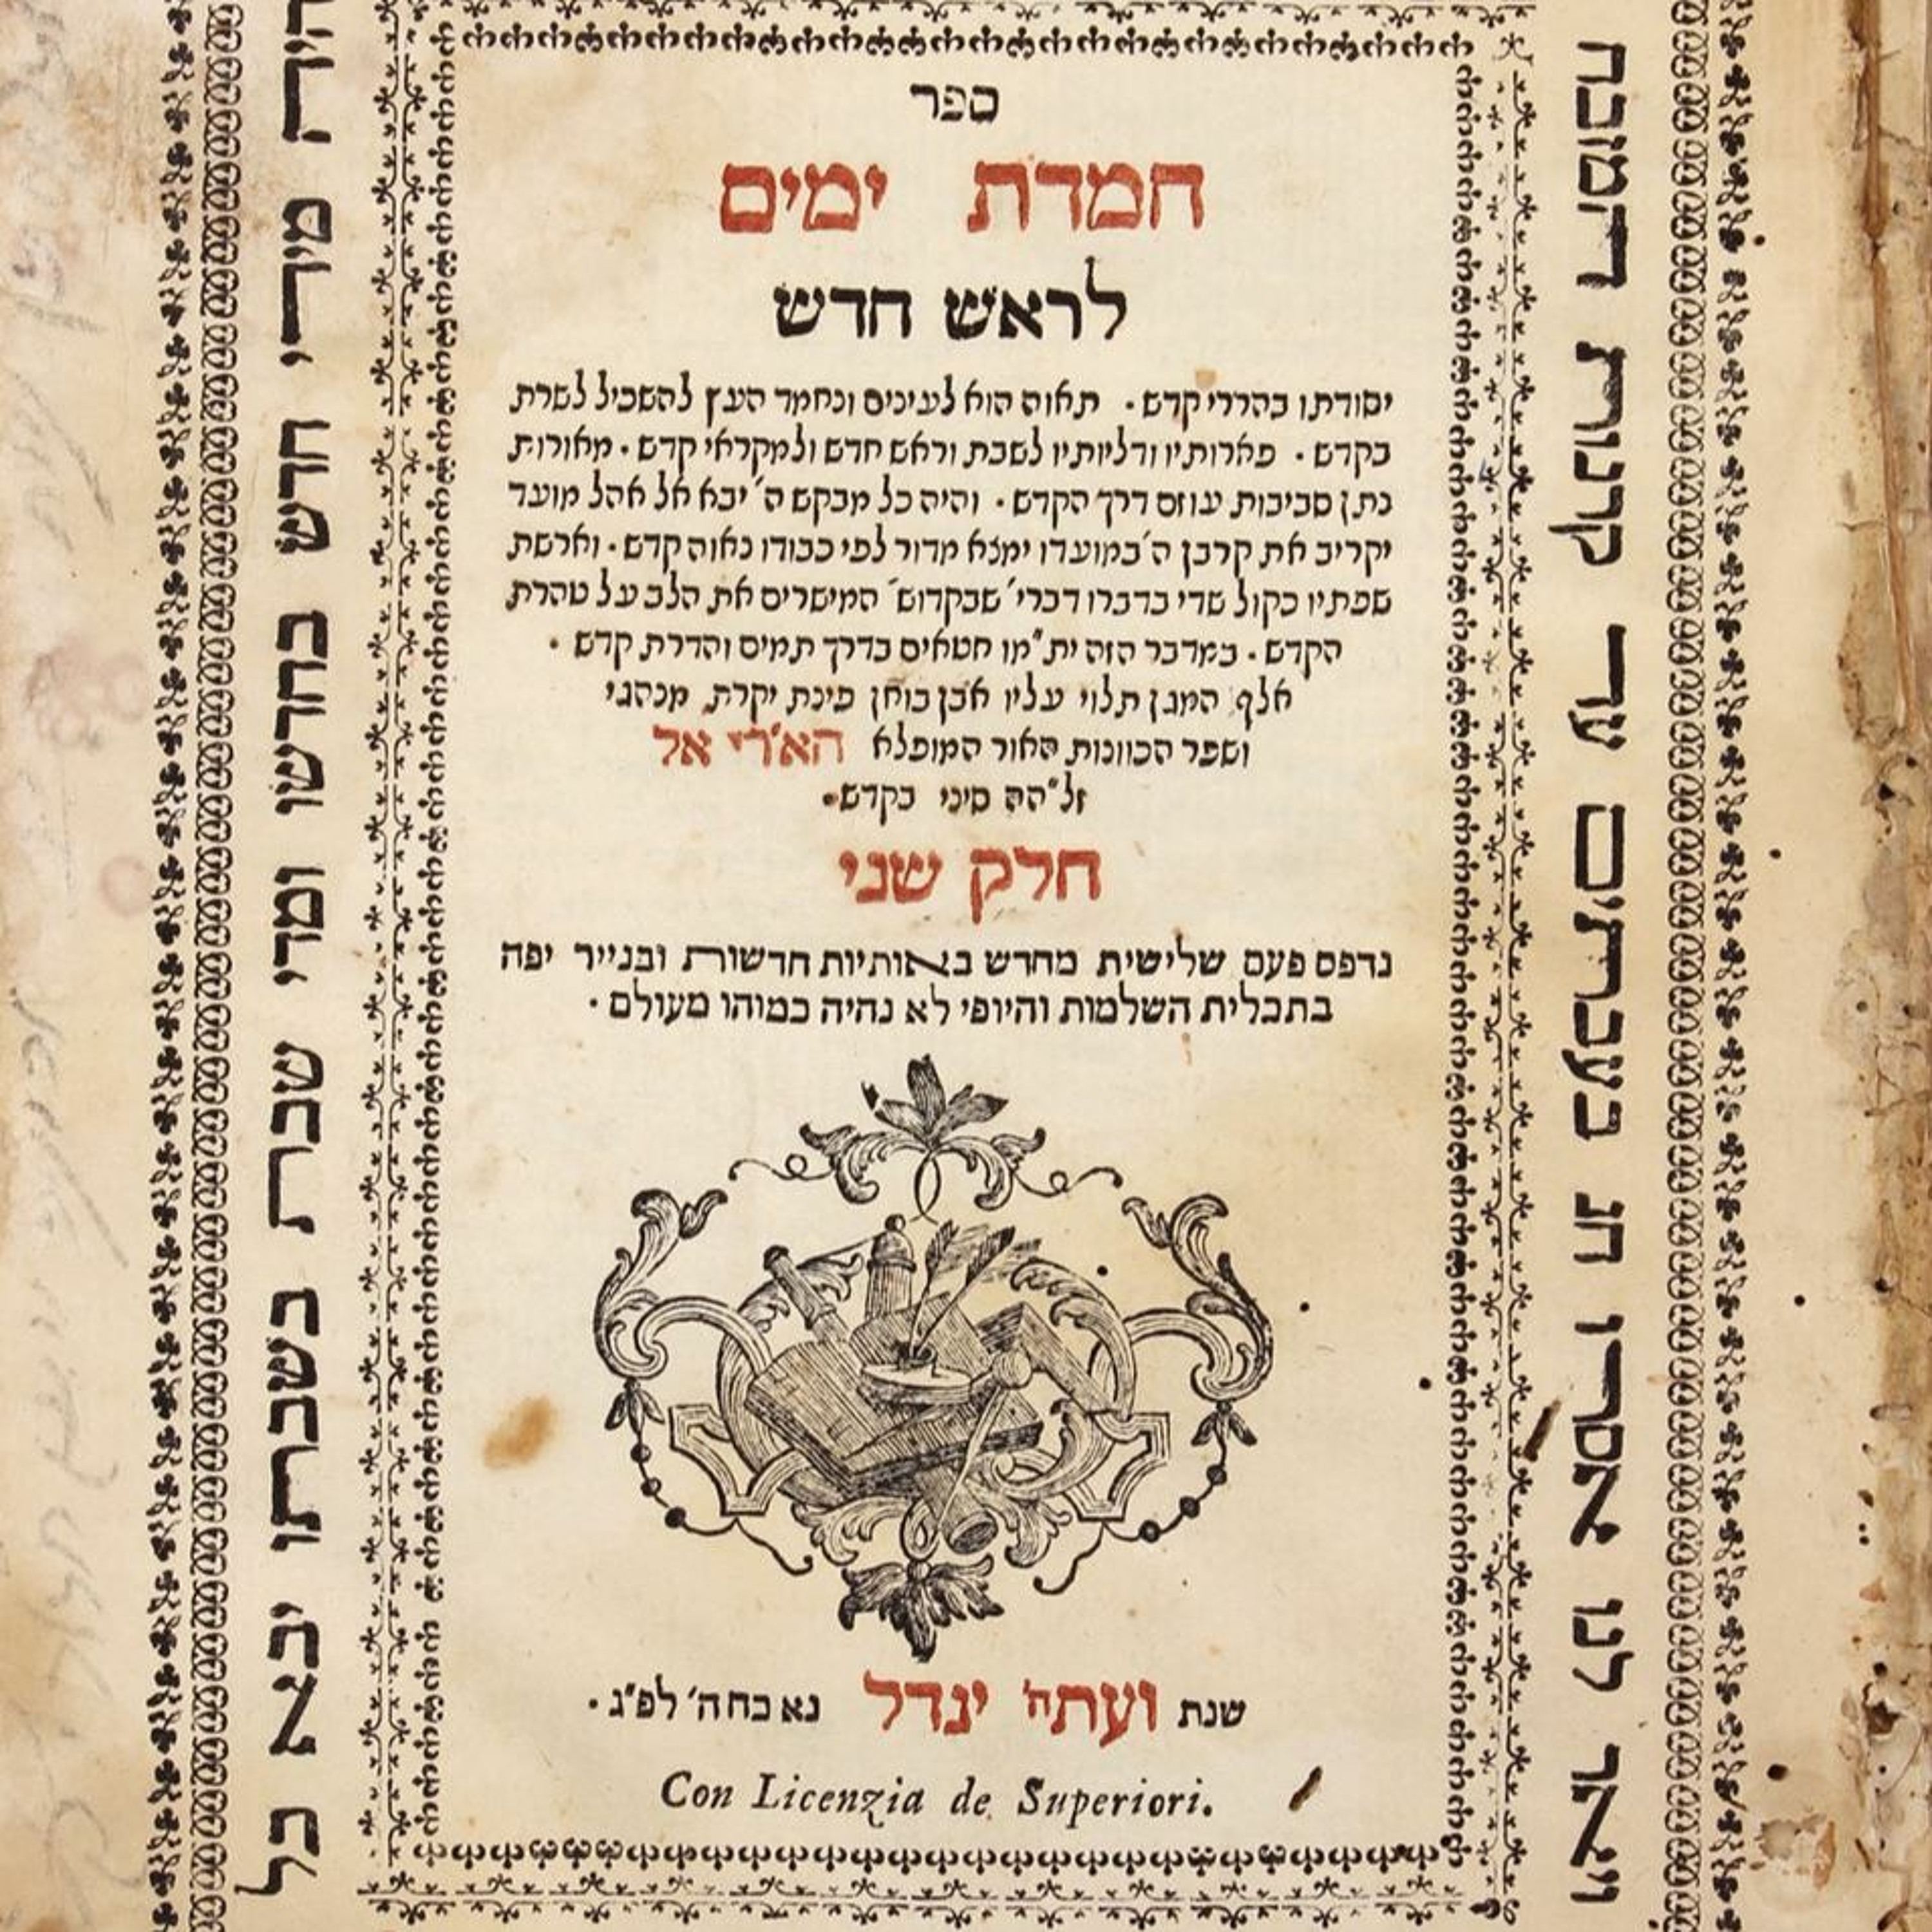 ספר
חמדת ימים
לראש חדש
יסודתו בהררי קדש · תאוה הוא לעינים ונחמד העץ להשכיל לשרת
בקדש · פארותיו ודליותיו לשבת וראש חדש ולמקראי קדש · מאורות
נתן סביבות עוזם דרך הקדש · והיה כל מבקש ה' יבא אל אהל מועד
יקריב את קרבן ה' במועדו ימצא מדור לפי כבודו נאוה קדש · וארשת
שפתיו כקול שדי בדברו דברי' שבקדוש' המישרים את הלב על טהרת
הקדש · במדבר הזה ית"מו חטאים בדרך תמים והדרת קדש ·
אלף המגן תלוי עליו אבן בוחן פינת יקרת, מנהגי
ושפר הכוונות האור המופלא הא'רי אל
זל"הה סיני בקדש·
חלק שני
נדפס פעם שלישית מחדש באותיות חדשות ובנייר יפה
בתכלית השלמות והיופי לא נהיה כמוהו מעולם ·
שנת ועתה יגדל נא כח ה' לפ"ג ·
Con Licenzia de Superiori.
ויאר לנו אסרו חג בעבתים עד קרנות המזבח
והיה מדי חדש בחדשו ומדי שבת בשבתו יבא כל